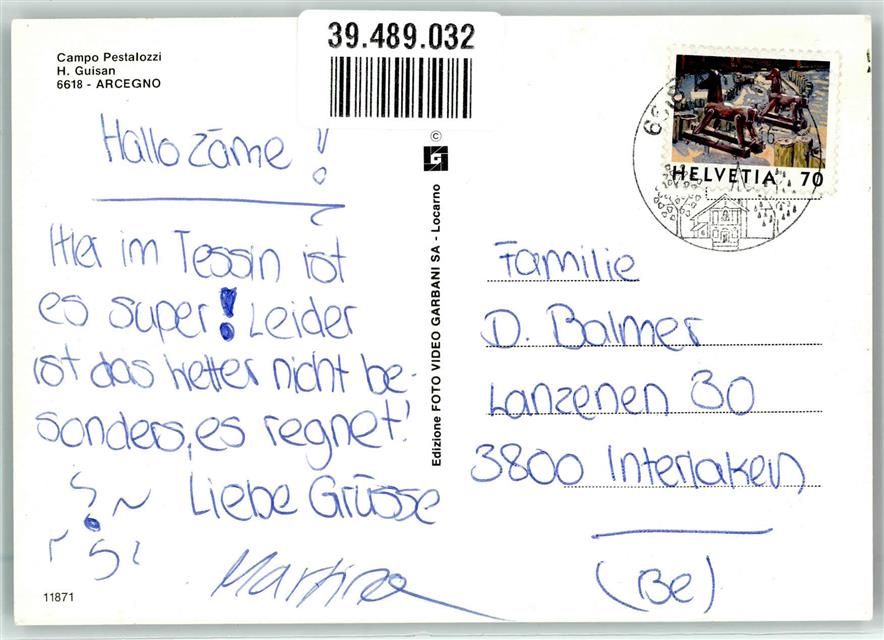 Campo Pestalozzi
H. Guisan
6618 - ARCEGNO
39.489.032
Hallo zäme!
Hier im Tessin ist
es super! Leider
ist das Wetter nicht be-
sonders, es regnet!
Liebe Grüsse
Martina
11871
©
Edizione FOTO VIDEO GARBANI SA - Locarno
HELVETIA 70
6618
Familie
D. Balmer
Lanzenen 30
3800 Interlaken
(Be)